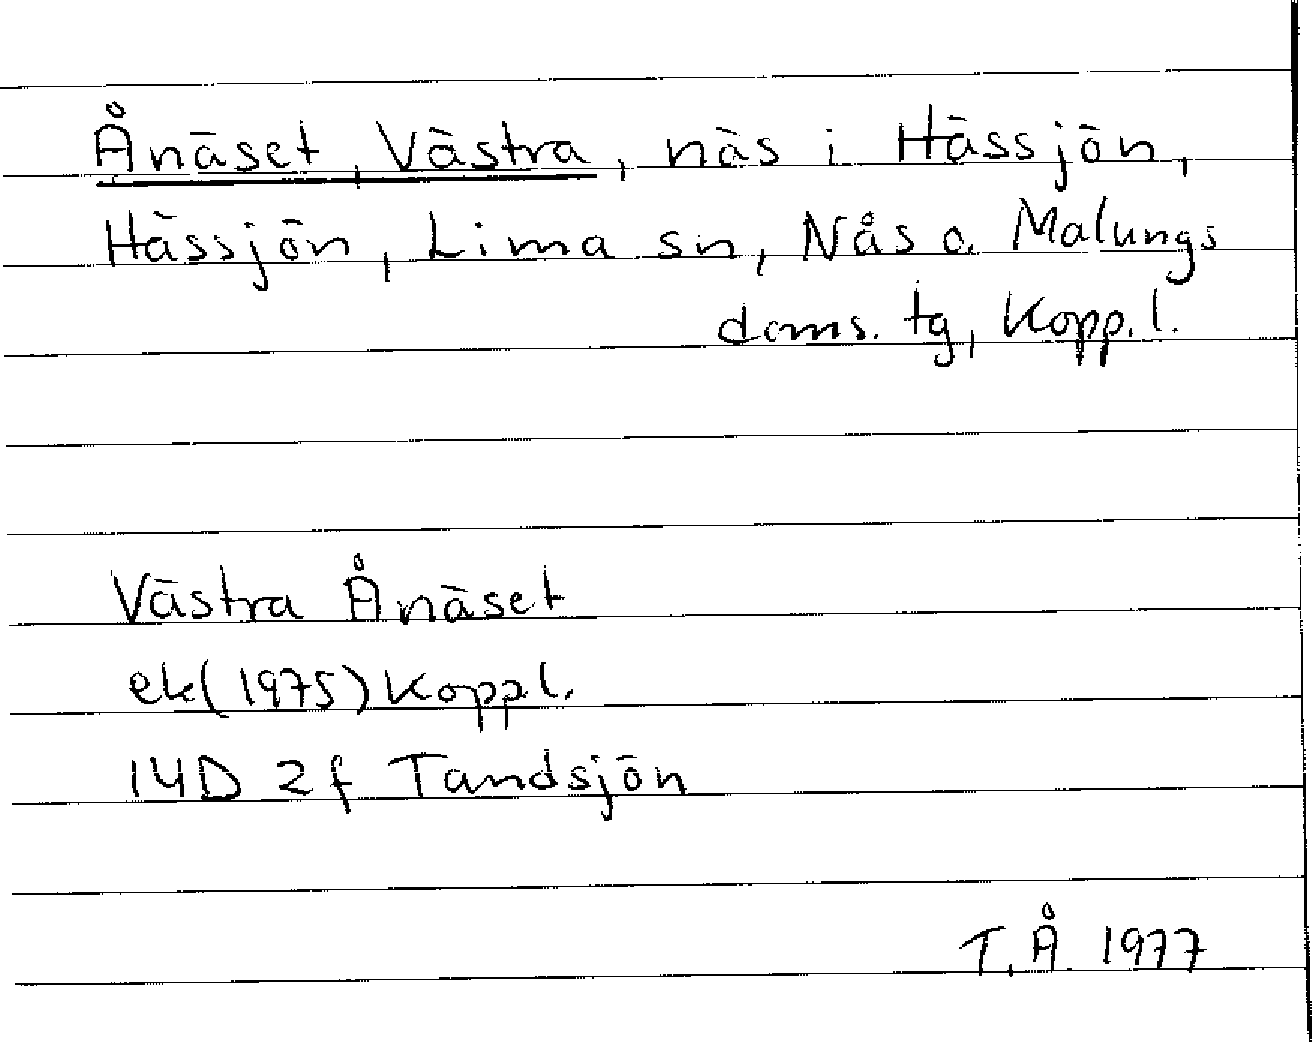 Ånäset, Västra, näs i Hässjön,
Hässjön, Lima sn, Nås o. Malungs
doms. tg, Kopp. l.
Västra Ånäset
ek (1975) Kopp. l.
14D 2f Tandsjön
T. Å. 1977